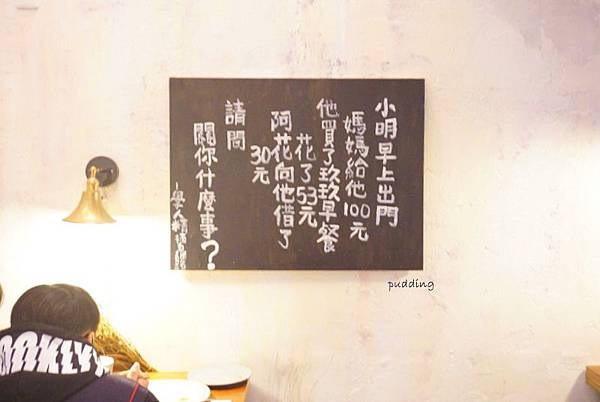 小明早上出門
媽媽給他100元
他買了玖玖早餐
花了53元
阿花向他借了
30元
請問
關你什麼事？
pudding
OOKLYN